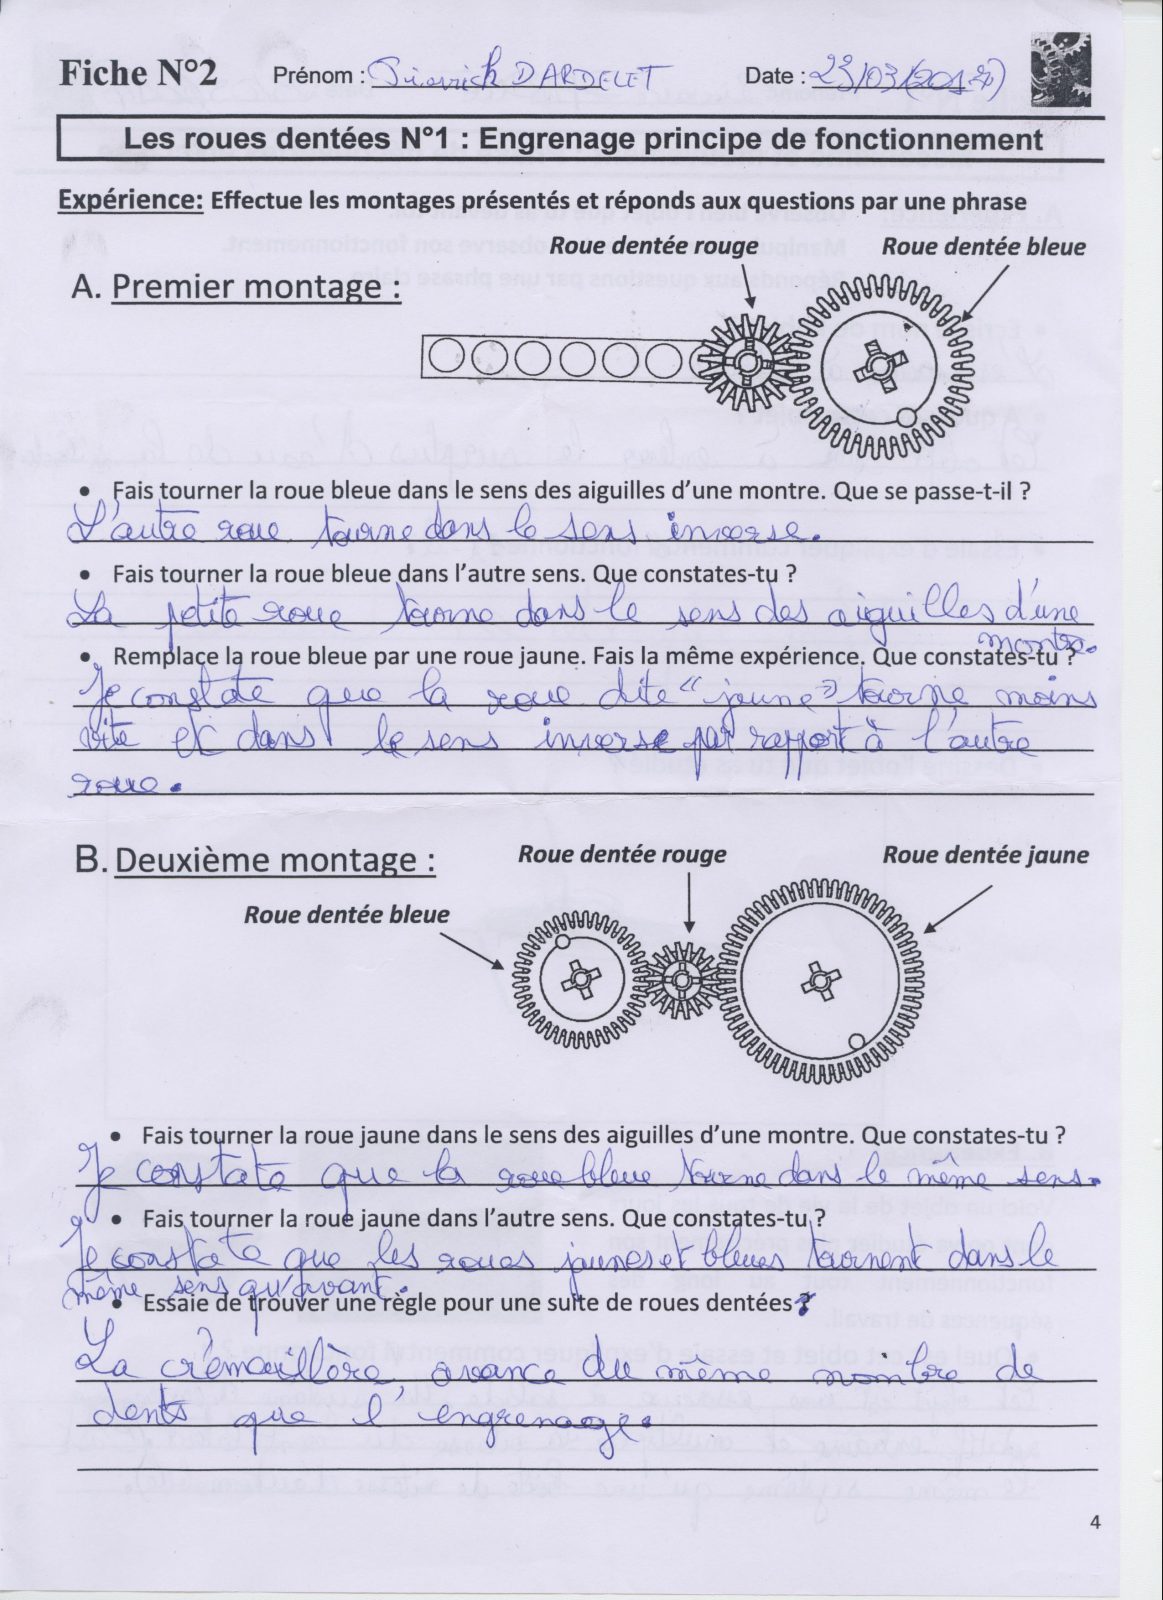 Fiche N°2 Prénom : Pierrick DARDELET Date : 23/03/(2017)
Les roues dentées N°1 : Engrenage principe de fonctionnement
Expérience: Effectue les montages présentés et réponds aux questions par une phrase
Roue dentée rouge Roue dentée bleue
A. Premier montage :
• Fais tourner la roue bleue dans le sens des aiguilles d'une montre. Que se passe-t-il ?
L'autre roue tourne dans le sens inverse.
• Fais tourner la roue bleue dans l'autre sens. Que constates-tu ?
La petite roue tourne dans le sens des aiguilles d'une
montre.
• Remplace la roue bleue par une roue jaune. Fais la même expérience. Que constates-tu ?
Je constate que la roue dite "jaune" tourne moins
vite et dans le sens inverse par rapport à l'autre
roue.
B. Deuxième montage :
Roue dentée rouge Roue dentée jaune
Roue dentée bleue
• Fais tourner la roue jaune dans le sens des aiguilles d'une montre. Que constates-tu ?
Je constate que la roue bleue tourne dans le même sens.
• Fais tourner la roue jaune dans l'autre sens. Que constates-tu ?
Je constate que les roues jaunes et bleues tournent dans le
même sens qu'avant.
• Essaie de trouver une règle pour une suite de roues dentées ?
La crémaillère avance du même nombre de
dents que l'engrenage.
4